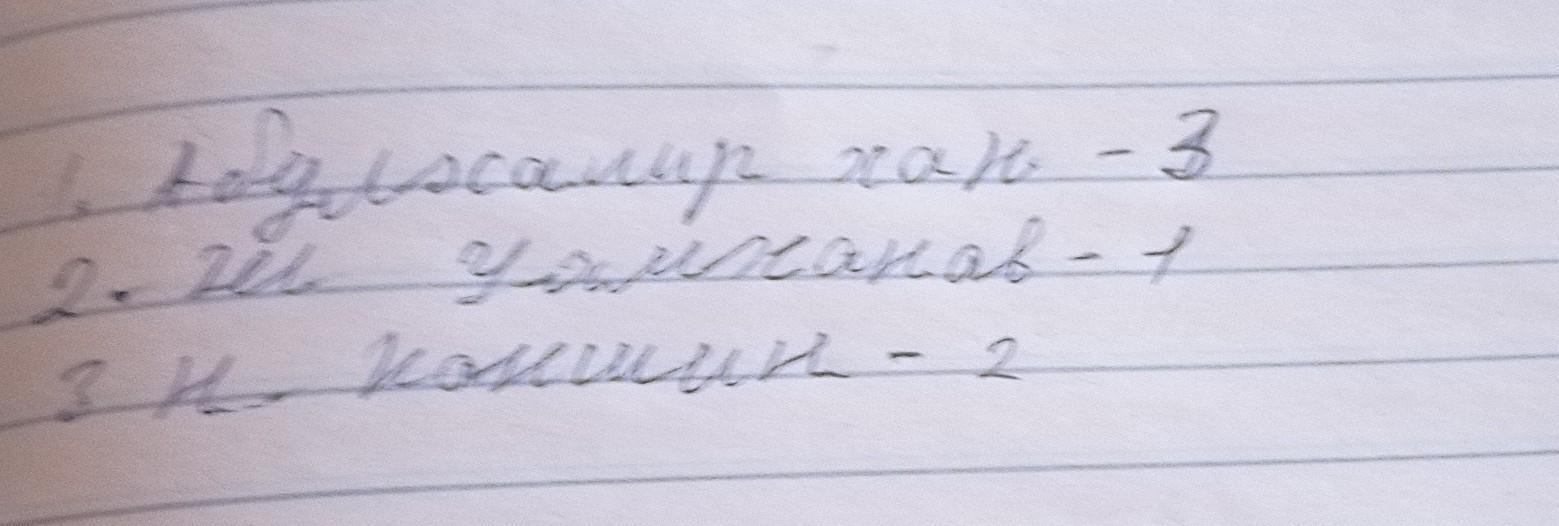 1. Абулхаир хан - 3
2. Ш. Уалиханов - 1
3 Н. Коншин - 2